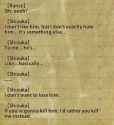 [Kanra]
Oh, oooh?
[Shizuka]
I don't like him, but I don't exactly hate
him... It's something else...
[Shizuka]
To me... he's...
[Shizuka]
Like... basically...
[Shizuka]
I don't want to lose him.
[Shizuka]
If you're gonna kill him, I'd rather you kill
me instead.